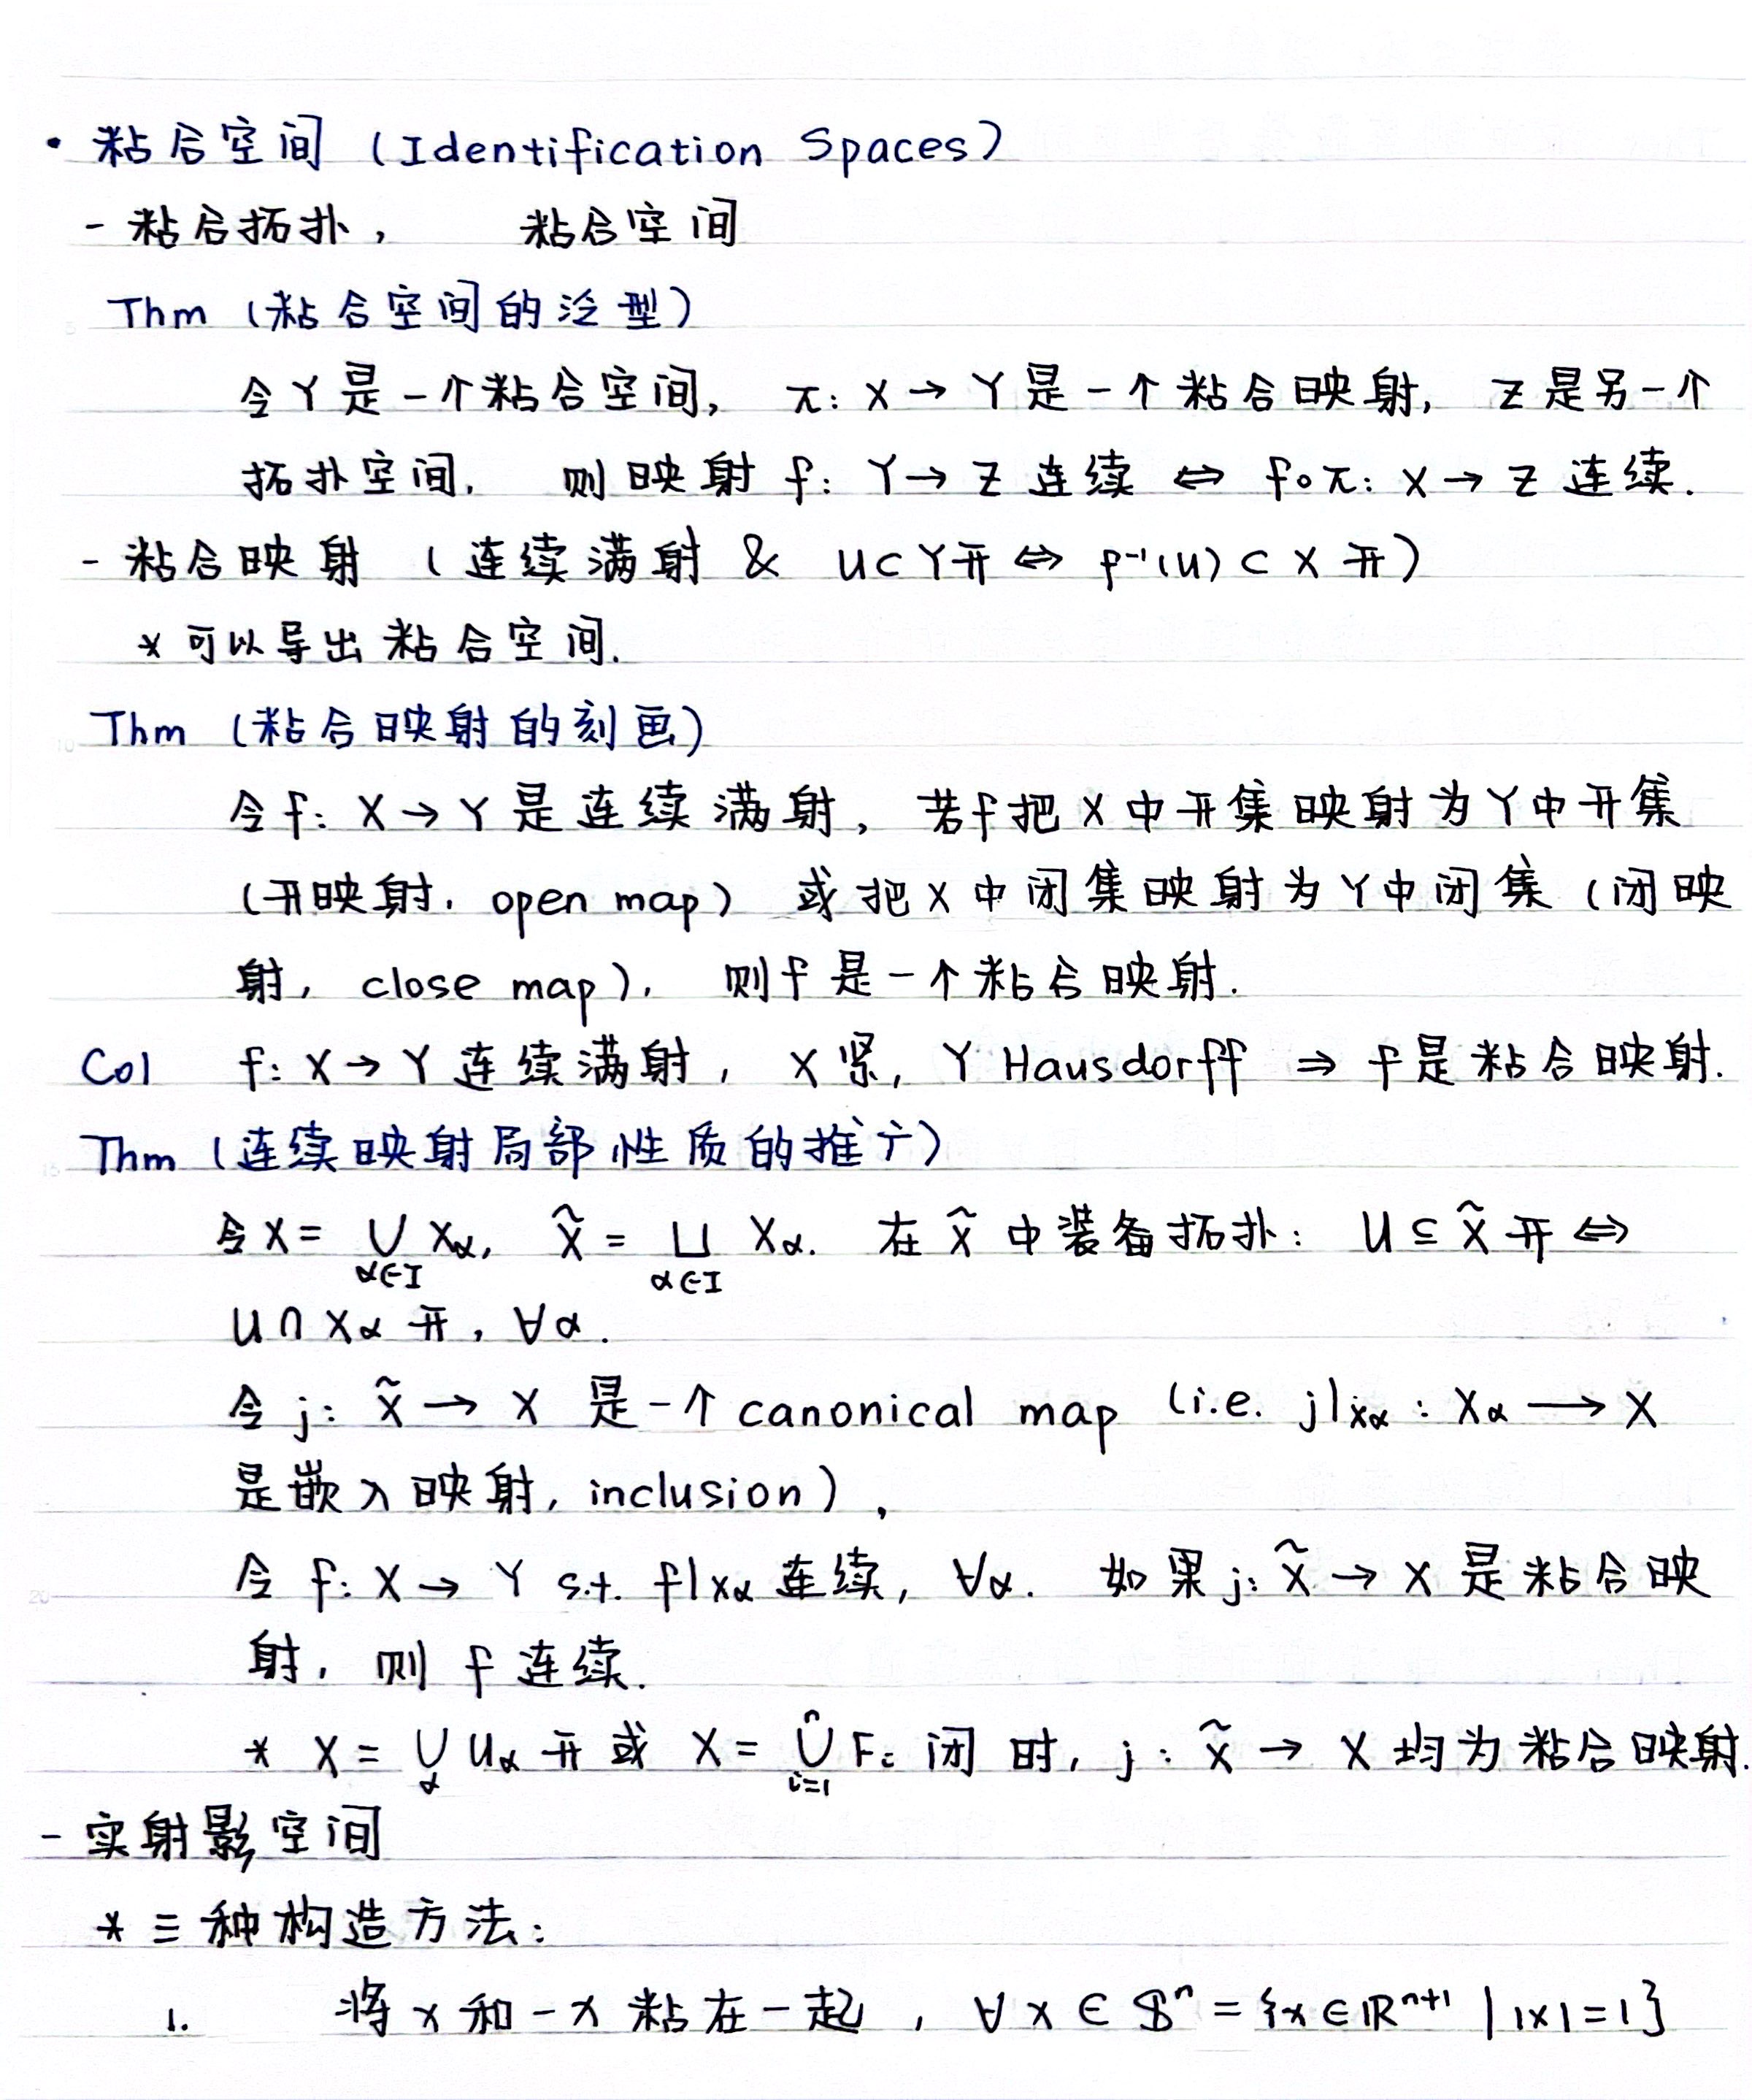 • 粘合空间 (Identification Spaces)
- 粘合拓扑, 粘合空间
Thm (粘合空间的泛型)
令 Y 是一个粘合空间, π: X → Y 是一个粘合映射, Z 是另一个
拓扑空间, 则映射 f: Y → Z 连续 ⇔ f∘π: X → Z 连续.
- 粘合映射 (连续满射 & U⊂Y开 ⇔ f⁻¹(U) ⊂ X 开)
* 可以导出粘合空间.
Thm (粘合映射的刻画)
令f: X → Y 是连续满射, 若f把 X 中开集映射为Y中开集
(开映射, open map) 或把 X 中闭集映射为Y中闭集 (闭映
射, close map), 则f是一个粘合映射.
Col f: X → Y 连续满射, X 紧, Y Hausdorff ⇒ f是粘合映射.
Thm (连续映射局部性质的推广)
令X = ∪ Xα, X̃ = ⊔ Xα. 在 X̃ 中装备拓扑: U ⊆ X̃ 开 ⇔
α∈I α∈I
U ∩ Xα 开, ∀α.
令 j: X̃ → X 是一个 canonical map (i.e. j|Xα : Xα → X
是嵌入映射, inclusion),
令 f: X → Y s.t. f|Xα 连续, ∀α. 如果 j: X̃ → X 是粘合映
射, 则 f 连续.
* X = ∪_α Uα 开 或 X = ∪_{i=1}^n Fi 闭 时, j : X̃ → X 均为粘合映射.
- 实射影空间
* 三种构造方法:
1. 将 x 和 -x 粘在一起, ∀ x ∈ 𝕊ⁿ = {x ∈ ℝⁿ⁺¹ | |x| = 1}